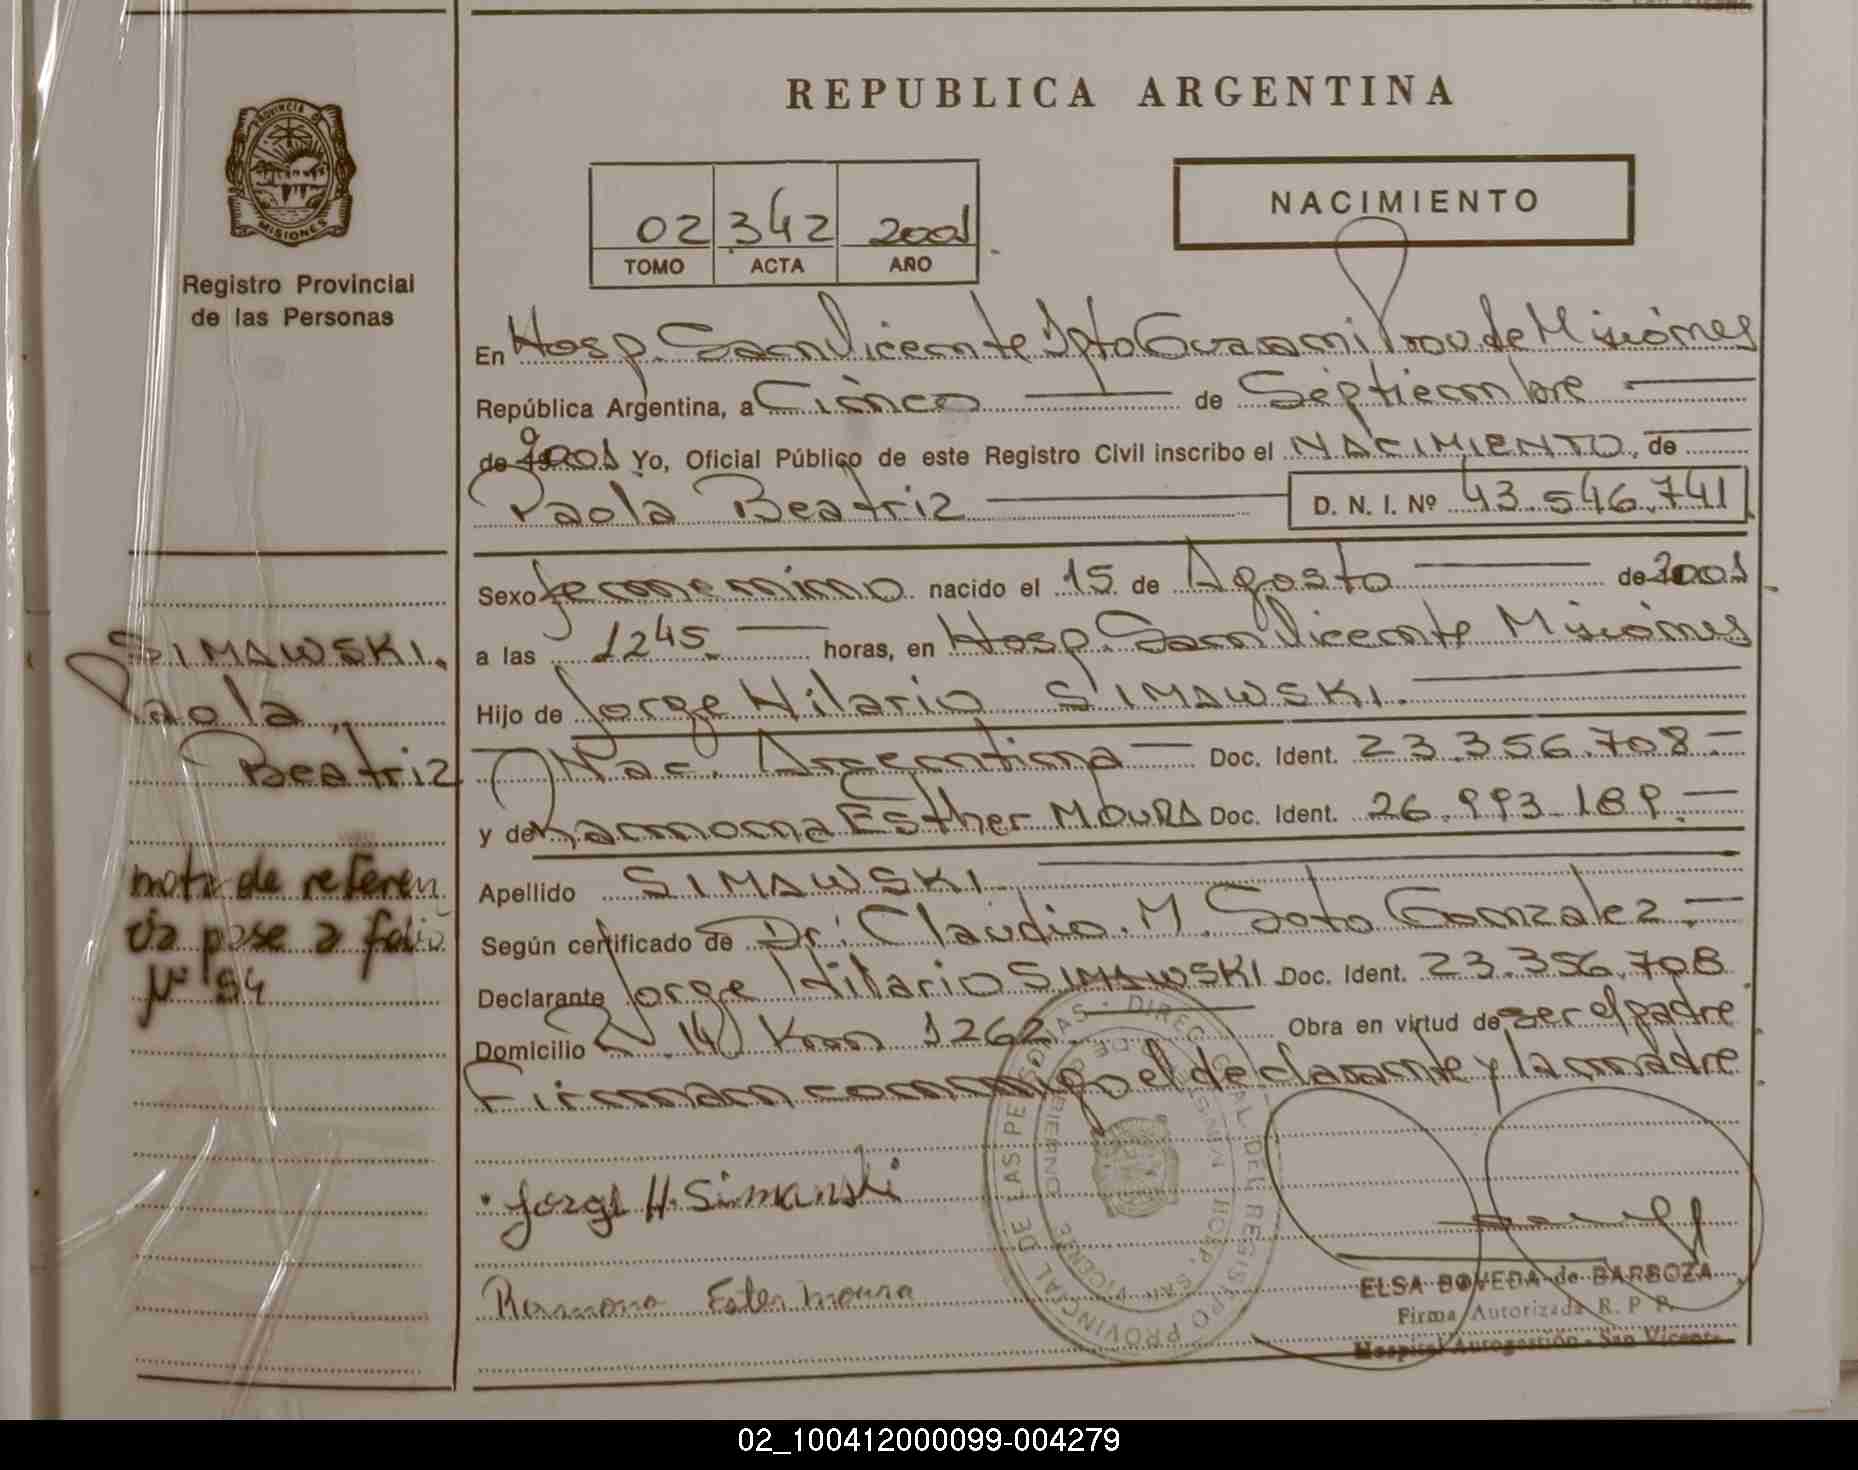 REPUBLICA ARGENTINA
PROVINCIA D
MISIONES
Registro Provincial
de las Personas
02 342 2001
TOMO ACTA AÑO
NACIMIENTO
En Hosp. San Vicente Dpto Guarani Prov. de Misiónes
República Argentina, a Cinco de Séptiembre
de 2001 Yo, Oficial Público de este Registro Civil inscribo el NACIMIENTO de
Paola Beatriz D. N. I. Nº 43.546.741
Sexo femenino nacido el 15 de Agosto de 2001
a las 12 45 horas, en Hosp. San Vicente Misiónes
Hijo de Jorge Hilario SIMAWSKI.
Nac. Argentina Doc. Ident. 23.356.708
y de Ramona Esther MOURA Doc. Ident. 26.993.189.
Apellido SIMAWSKI
Según certificado de Dr: Claudio. M. Soto Gonzalez.
Declarante Jorge Hilario SIMAWSKI Doc. Ident. 23.356.708
Domicilio R. 14 Km 1262 Obra en virtud de ser el padre
Firman conmigo el declarante y la madre
SIMAWSKI.
Paola
Beatriz
nota de referen
cia pase a folio
Nº 94
Jorge H. Simanski
Ramona Ester moura
DIREC AL DEL REGISTRO PROVINCIAL DE LAS PERSONAS
HOSP. SAN VICENTE
ELSA BOVEDA de BARBOZA
Firma Autorizada R. P. P.
Hospital Autogestión - San Vicente
02_100412000099-004279